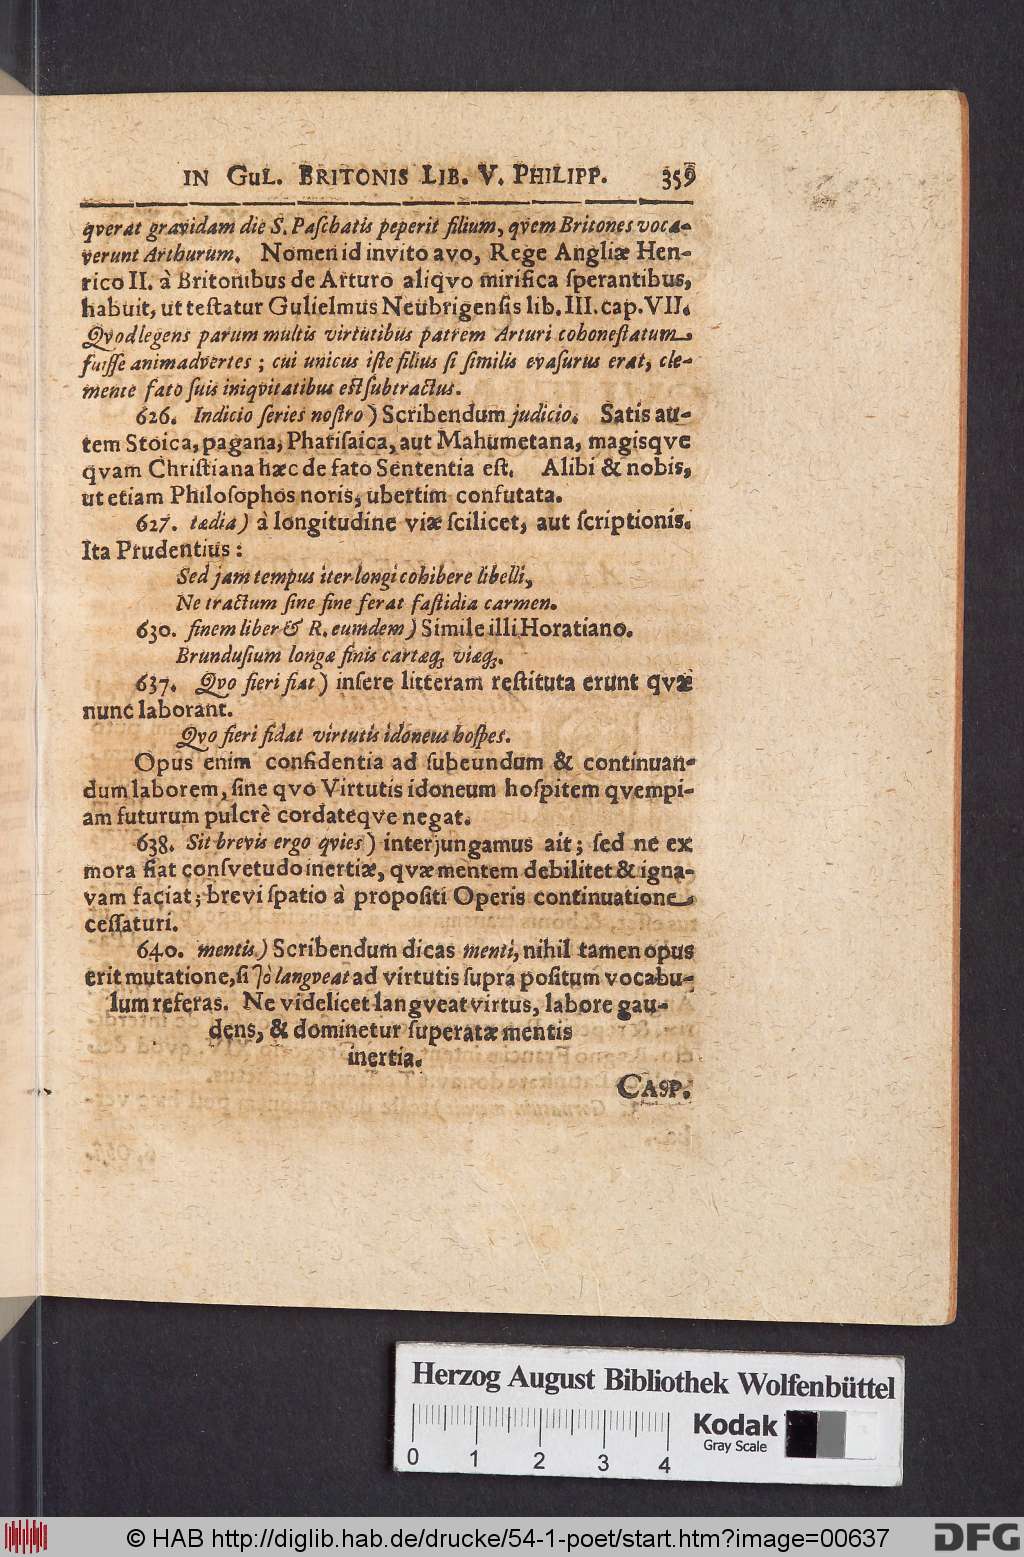 IN GUL. BRITONIS LIB. V. PHILIPP. 359
qverat gravidam die S. Paſchatis peperit filium, qvem Britones voca-
verunt Arthurum. Nomen id invito avo, Rege Angliæ Hen-
rico II. à Britonibus de Arturo aliqvo mirifica ſperantibus,
habuit, ut teſtatur Gulielmus Neubrigenſis lib. III. cap. VII.
Qvod legens parum multis virtutibus patrem Arturi cohoneſtatum
fuiſſe animadvertes; cui unicus iſte filius ſi ſimilis evaſurus erat, cle-
mente fato ſuis iniqvitatibus eſt ſubtractus.
626. Indicio ſeries noſtro) Scribendum judicio. Satis au-
tem Stoica, pagana, Phariſaica, aut Mahumetana, magisqve
qvam Chriſtiana hæc de fato Sententia eſt. Alibi & nobis,
ut etiam Philoſophos noris, ubertim confutata.
627. tædia) à longitudine viæ ſcilicet, aut ſcriptionis.
Ita Prudentius:
Sed jam tempus iter longi cohibere libelli,
Ne tractum ſine fine ferat faſtidia carmen.
630. finem liber & R. eumdem) Simile illi Horatiano.
Brunduſium longæ finis cartæq; viæq;.
637. Qvo fieri fiat) inſere litteram reſtituta erunt qvæ
nunc laborant.
Qvo fieri fidat virtutis idoneus hoſpes.
Opus enim confidentia ad ſubeundum & continuan-
dum laborem, ſine qvo Virtutis idoneum hoſpitem qvempi-
am futurum pulcrè cordateqve negat.
638. Sit brevis ergo qvies) interjungamus ait; ſed ne ex
mora fiat conſvetudo inertiæ, qvæ mentem debilitet & igna-
vam faciat; brevi ſpatio à propoſiti Operis continuatione
ceſſaturi.
640. mentis) Scribendum dicas menti, nihil tamen opus
erit mutatione, ſi langveat ad virtutis ſupra poſitum vocabu-
lum referas. Ne videlicet langveat virtus, labore gau-
dens, & dominetur ſuperatæ mentis
inertia.
CASP.
Herzog August Bibliothek Wolfenbüttel
Kodak
Gray Scale
0 1 2 3 4
© HAB http://diglib.hab.de/drucke/54-1-poet/start.htm?image=00637
DFG